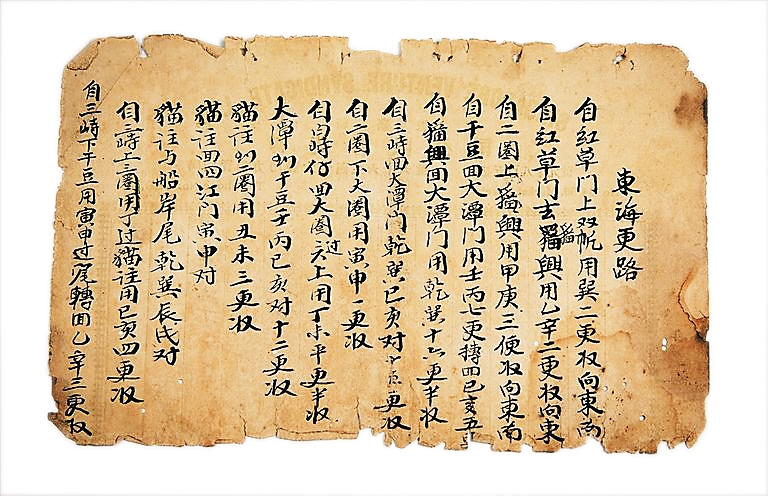 東海更路
自紅草门上双帆用巽二更收向東南
自紅草门去猫興用乙辛二更收向東
自二圈上猫興用甲庚三便收向東南
自干豆回大潭门用壬丙七更轉回巳亥五
自猫興回大潭门用乾巽十六更半收
自三峙回大潭门乾巽巳亥对十五更收
自二圈下大圈用寅申一更收
自白峙仔回大圈过上用丁未平更半收
大潭到干豆壬丙巳亥对十二更收
猫注到二圈用丑未三更收
猫注回四江门寅申对
猫注与船岸尾乾巽辰戌对
自三峙上三圈用丁过猫注用巳亥四更收
自三峙下干豆用寅申过尾轉回乙辛三更收